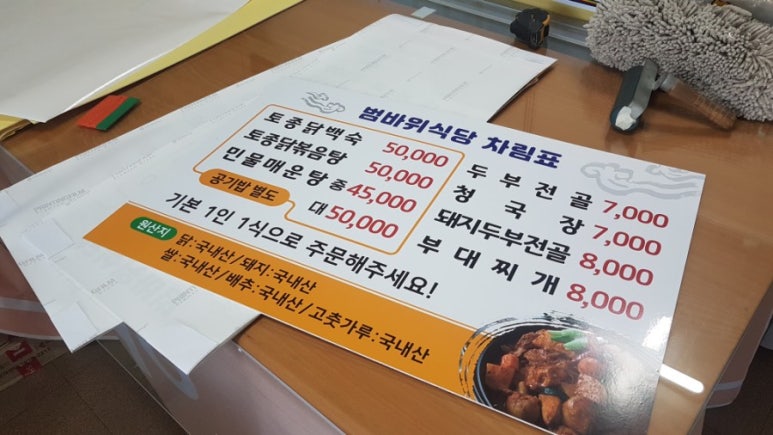 범바위식당 차림표
토종닭백숙 50,000
토종닭볶음탕 50,000
민물매운탕 중 45,000
공기밥 별도 대 50,000
두부전골 7,000
청국장 7,000
돼지두부전골 8,000
부대찌개 8,000
기본 1인 1식으로 주문해주세요!
원산지
닭:국내산/돼지:국내산
쌀:국내산/배추:국내산/고춧가루:국내산